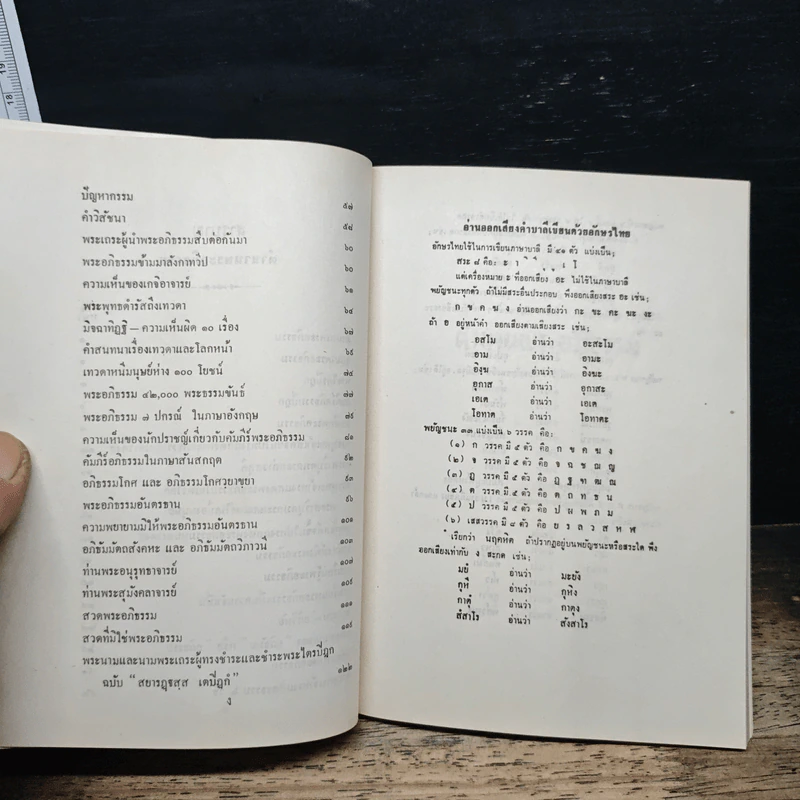 19
18
ปัญหากรรม ๕๗
คำวิสัชนา ๕๘
พระเถระผู้นำพระอภิธรรมสืบต่อกันมา ๖๐
พระอภิธรรมข้ามมาลังกาทวีป ๖๐
ความเห็นของเกจิอาจารย์ ๖๑
พระพุทธดำรัสถึงเทวดา ๖๔
มิจฉาทิฏฐิ — ความเห็นผิด ๑๐ เรื่อง ๖๗
คำสนทนาเรื่องเทวดาและโลกหน้า ๖๙
เทวดาหนีมนุษย์ห่าง ๑๐๐ โยชน์ ๗๔
พระอภิธรรม ๔๒,๐๐๐ พระธรรมขันธ์ ๗๗
พระอภิธรรม ๗ ปกรณ์ ในภาษาอังกฤษ ๗๙
ความเห็นของนักปราชญ์เกี่ยวกับคัมภีร์พระอภิธรรม ๘๑
คัมภีร์อภิธรรมในภาษาสันสกฤต ๙๒
อภิธรรมโกศ และ อภิธรรมโกศวฺยาขฺยา ๙๓
พระอภิธรรมอันตรธาน ๙๖
ความพยายามมิให้พระอภิธรรมอันตรธาน ๑๐๑
อภิธัมมัตถสังคหะ และ อภิธัมมัตถวิภาวนี ๑๐๓
ท่านพระอนุรุทธาจารย์ ๑๐๗
ท่านพระสุมังคลาจารย์ ๑๐๙
สวดพระอภิธรรม ๑๑๑
สวดที่มิใช่พระอภิธรรม ๑๑๙
พระนามและนามพระเถระผู้ทรงชำระและชำระพระไตรปิฎก
ฉบับ “สยารฏฺฐสฺส เตปิฏกํ” ๑๒๒
ง
อ่านออกเสียงคำบาลีเขียนด้วยอักษรไทย
อักษรไทยใช้ในการเขียนภาษาบาลี มี ๔๑ ตัว แบ่งเป็น;
สระ ๘ คือ: ะ า ิ ี ุ ู เ โ
แต่เครื่องหมาย ะ ที่ออกเสียง อะ ไม่ใช้ในภาษาบาลี
พยัญชนะทุกตัว ถ้าไม่มีสระอื่นประกอบ พึงออกเสียงสระ อะ เช่น;
ก ข ค ฆ ง อ่านออกเสียงว่า กะ ขะ คะ ฆะ งะ
ถ้า อ อยู่หน้าคำ ออกเสียงตามเสียงสระ เช่น;
อสโม อ่านว่า อะสะโม
อาม อ่านว่า อามะ
อิงฺฆ อ่านว่า อิงฆะ
อุกาส อ่านว่า อุกาสะ
เอเต อ่านว่า เอเต
โอทาต อ่านว่า โอทาตะ
พยัญชนะ ๓๓ แบ่งเป็น ๖ วรรค คือ:
(๑) ก วรรค มี ๕ ตัว คือ ก ข ค ฆ ง
(๒) จ วรรค มี ๕ ตัว คือ จ ฉ ช ฌ ญ
(๓) ฏ วรรค มี ๕ ตัว คือ ฏ ฐ ฑ ฒ ณ
(๔) ต วรรค มี ๕ ตัว คือ ต ถ ท ธ น
(๕) ป วรรค มี ๕ ตัว คือ ป ผ พ ภ ม
(๖) เสสวรรค มี ๘ ตัว คือ ย ร ล ว ส ห ฬ
เรียกว่า นฤคหิต ถ้าปรากฏอยู่บนพยัญชนะหรือสระใด พึง
ออกเสียงเท่ากับ ง สะกด เช่น;
มยํ อ่านว่า มะยัง
กุหึ อ่านว่า กุหิง
กาตุํ อ่านว่า กาตุง
สํสาโร อ่านว่า สังสาโร